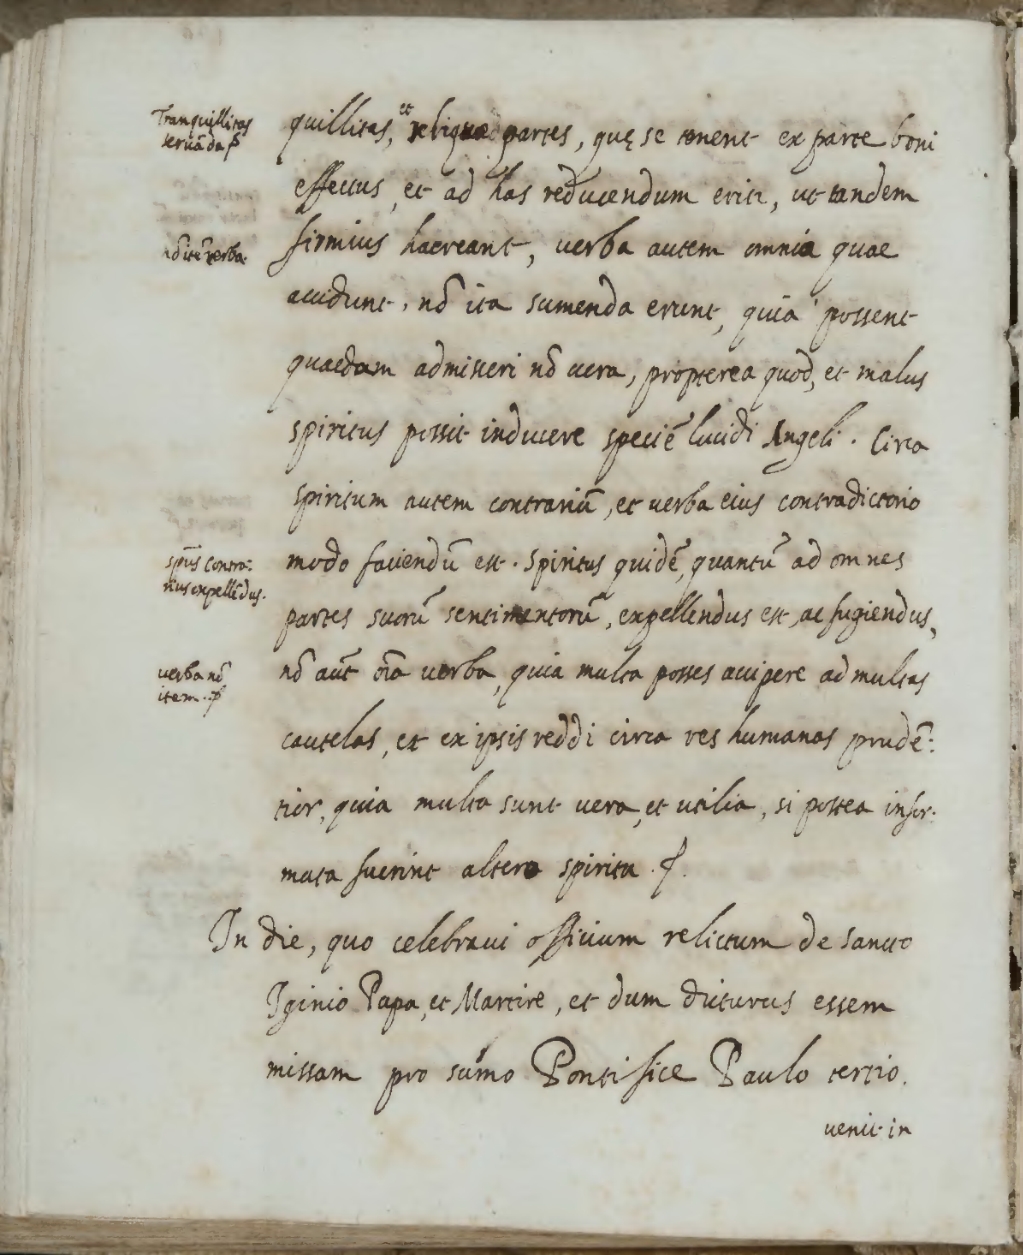 Tranquillitas
seruãda
quillitas, et reliquæ partes, quę se tenent ex parte boni
effectus, et ad has reducendum erit, ut tandem
firmius haereant, verba autem omnia quae
nõ itẽ verba.
accidunt, nõ ita sumenda erunt, quia possent
quaedam admisceri nõ vera, propterea quod, et malus
spiritus possit inducere speciẽ lucidi Angeli. Circa
spiritum autem contrariũ, et verba eius contradictorio
modo faciendũ est. Spiritus quidẽ, quantũ ad omnes
spũs contra:
rius expellẽdus.
partes suorũ sentimentorũ, expellendus est, ac fugiendus,
nõ aũt oĩa verba, quia multa posses accipere ad multas
verba nõ
item.
cautelas, et ex ipsis reddi circa res humanas prudẽ:
tior, quia multa sunt vera, et utilia, si postea infor:
mata fuerint altero spiritu.
In die, quo celebravi officium relictum de sancto
Iginio Papa, et Martire, et dum dicturus essem
missam pro sũmo Pontifice Paulo tertio.
venit in